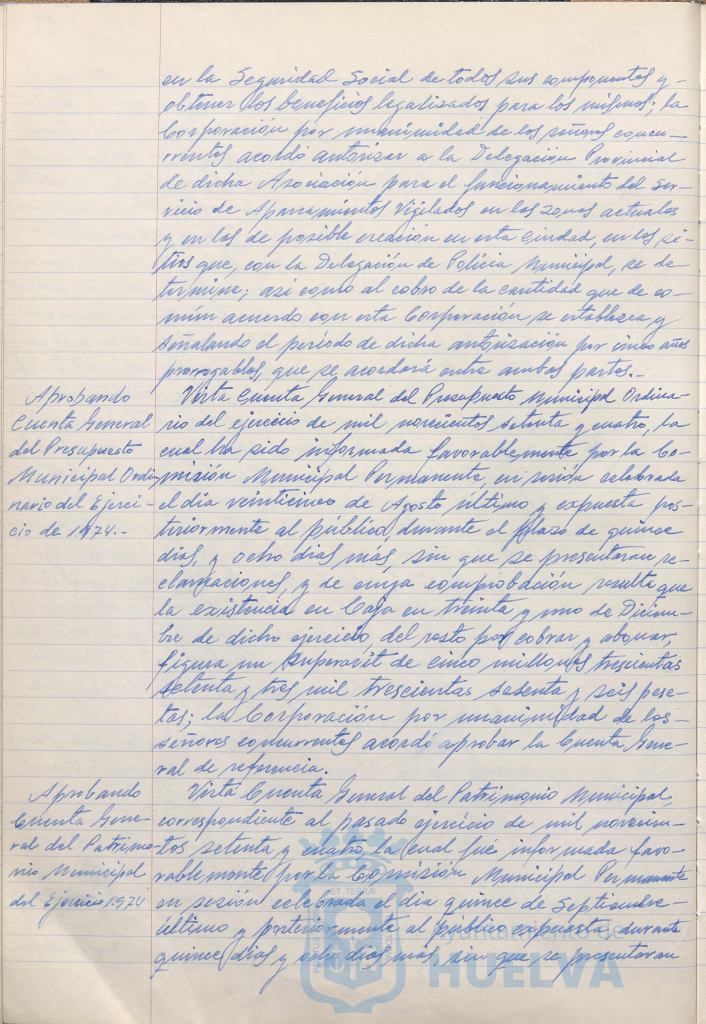 en la Seguridad Social de todos sus componentes y
obtener los beneficios legalizados para los mismos; la
Corporación por unanimidad de los señores concu-
rrentes acordó autorizar a la Delegación Provincial
de dicha Asociación para el funcionamiento del Ser-
vicio de Aparcamientos Vigilados en las zonas actuales
y en las de posible creación en esta Ciudad, en los si-
tios que, con la Delegación de Policía Municipal, se de-
termine; así como al cobro de la cantidad que de co-
mún acuerdo con esta Corporación se establezca, y
señalando el período de dicha autorización por cinco años
prorrogables, que se acordará entre ambas partes.-
Aprobando
Cuenta General
del Presupuesto
Municipal Ordi-
nario del Ejerci-
cio de 1.974.-
Vista Cuenta General del Presupuesto Municipal Ordina-
rio del ejercicio de mil novecientos setenta y cuatro, la
cual ha sido informada favorablemente por la Co-
misión Municipal Permanente, en sesión celebrada
el día veinticinco de Agosto último y expuesta pos-
teriormente al público, durante el plazo de quince
días, y ocho días más, sin que se presentaran re-
clamaciones, y de cuya comprobación resulta que
la existencia en Caja en treinta y uno de Diciem-
bre de dicho ejercicio del resto por cobrar y abonar,
figura un superavit de cinco millones trescientas
setenta y tres mil trescientas sesenta y seis pese-
tas; la Corporación por unanimidad de los
señores concurrentes acordó aprobar la Cuenta Gene-
ral de referencia.
Aprobando
Cuenta Gene-
ral del Patrimo-
nio Municipal
del Ejercicio 1.974
Vista Cuenta General del Patrimonio Municipal,
correspondiente al pasado ejercicio de mil novecien-
tos setenta y cuatro la cual fué informada favo-
rablemente por la Comisión Municipal Permanente
en sesión celebrada el día quince de Septiembre
último y posteriormente al público expuesta durante
quince días y ocho días más, sin que se presentaran
ET TERRÆ
Ayuntamiento de
HUELVA